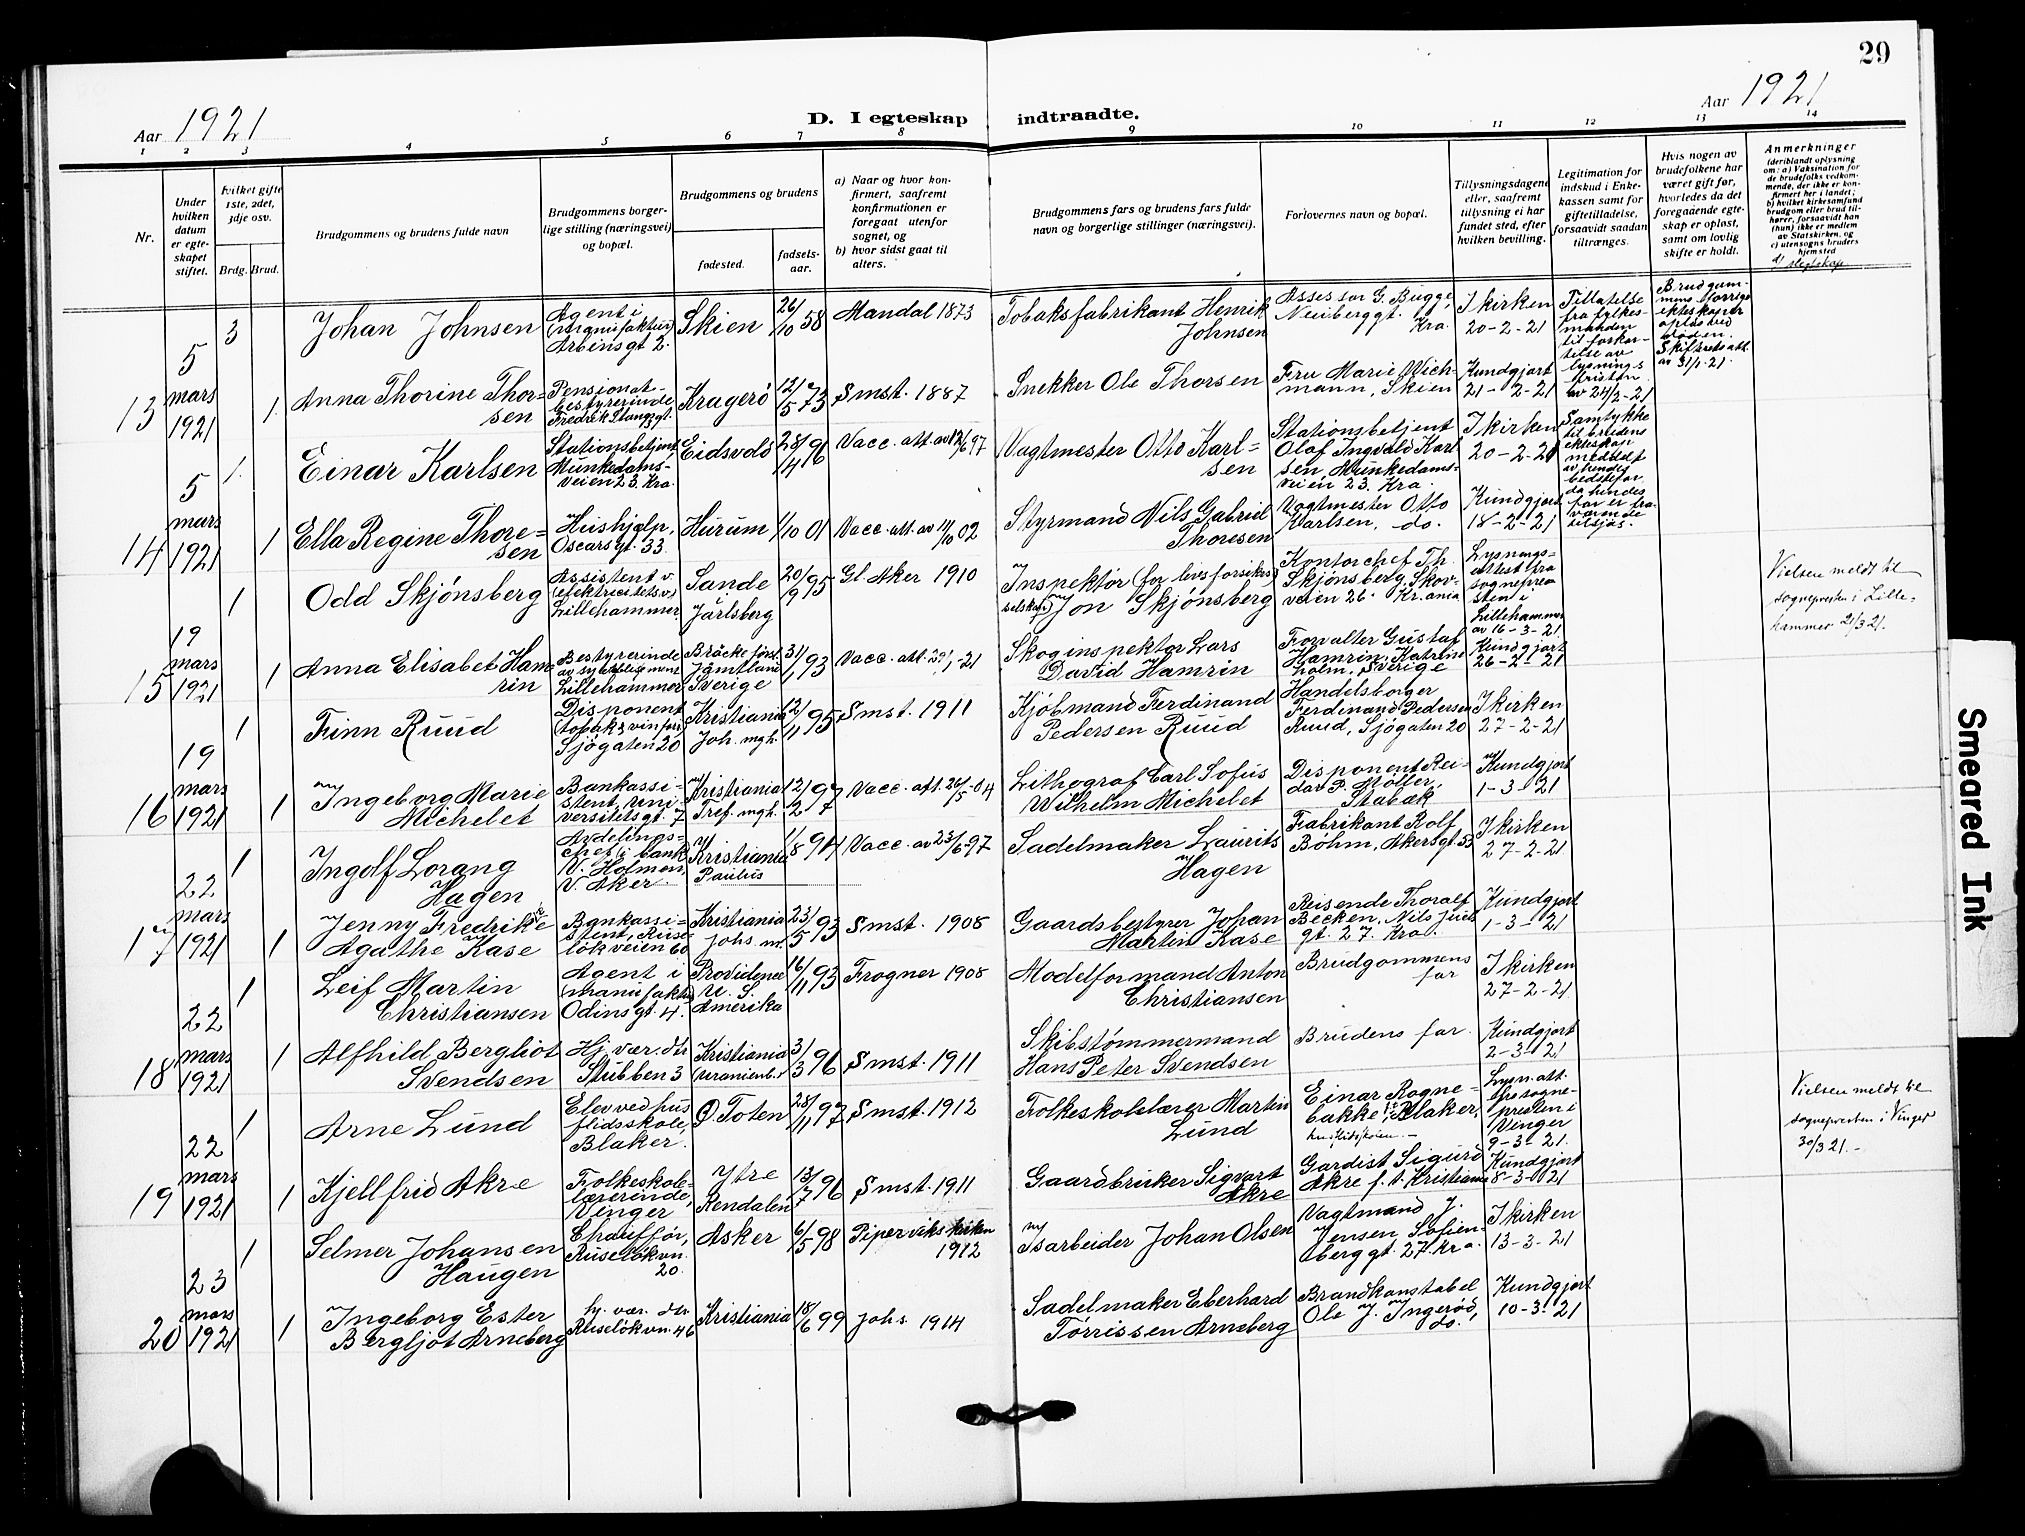 29
Aar 1921
D. I egteskap indtraadte.
Aar 1921
1 2 3 4 5 6 7 8 9 10 11 12 13 14
Nr.
Under hvilken datum er egteskapet stiftet.
hvilket gifte 1ste, 2det, 3dje osv.
Brdg. Brud.
Brudgommens og brudens fulde navn
Brudgommens borgerlige stilling (næringsvei) og bopæl.
Brudgommens og brudens
fødested.
fødselsaar.
a) Naar og hvor konfirmert, saafremt konfirmationen er foregaat utenfor sognet, og
b) hvor sidst gaat til alters.
Brudgommens fars og brudens fars fulde navn og borgerlige stillinger (næringsvei).
Forlovernes navn og bopæl.
Tillysningsdagene eller, saafremt tillysning ei har fundet sted, efter hvilken bevilling.
Legitimation for indskud i Enkekassen samt for giftetilladelse, forsaavidt saadan tiltrænges.
Hvis nogen av brudefolkene har været gift før, hvorledes da det foregaaende egteskap er opløst, samt om lovlig skifte er holdt.
Anmerkninger
(deriblandt oplysning om: a) Vaksination for de brudefolks vedkommende, der ikke er konfirmert her i landet; b) hvilket kirkesamfund brudgom eller brud tilhører, forsaavidt han (hun) ikke er medlem av Statskirken, og c) utensogns bruders hjemsted
d) slegtskap
13 5 mars 1921
3 Johan Johnsen Agent i (manufaktur) Arbinsgt 2. Skien 26/10 58 Mandal 1873 Tobaksfabrikant Henrik Johnsen Assessor G. Bugge, Neuberggt. Kra. I kirken 20-2-21 Tillatelse fra fylkesmanden til forkortelse av lysningsfristen av 24/2-21 Brudgommens forrige ekteskap er opløst ved døden. Skifteatt. av 31/1-21.
1 Anna Thorine Thorsen Pensionatbestyrerinde Fredrik Stangsgt. Kragerø 12/5 73 Smst. 1887 Snekker Ole Thorsen Fru Marie Wichmann, Skien Kundgjort 21-2-21
14 5 mars 1921
1 Einar Karlsen Stationsbetjent, Munkedamsveien 23. Kra. Eidsvold 28/4 96 Vacc. att. av 12/6 97 Vagtmester Otto Karlsen Stationsbetjent Olaf Ingvald Karlsen Munkedamsveien 23. Kra. I kirken 20-2-21 Samtykke til brudens ekteskap meddelt av hendes bedstefar da hendes far er fraværende tilsjøs.
1 Ella Regine Thoresen Hushjælp, Oscarsgt. 33. Hurum 1/10 01 Vacc. att. av 14/10 02 Styrmand Nils Gabriel Thoresen Vagtmester Otto Karlsen, do. Kundgjort 18-2-21
15 19 mars 1921
1 Odd Skjønsberg Assistent v. (elektricitetsv.) Lillehammer Sande i Jarlsberg 20/9 95 Gl. Aker 1910 Inspektør (for livsforsikrsselskap) Jon Skjønsberg Kontorchef Th. Skjønsberg, Skovveien 26. Kr.ania Lysningsattest fra sognepresten i Lillehammer av 16-3-21 Vielsen meldt til sognepresten i Lillehammer 21/3 21.
1 Anna Elisabet Hamrin Bestyrerinde Lillehammer Bräcke förs. Jämtland Sverige 31/1 93 Vacc. att. 29/1 21 Skoginspektør Lars David Hamrin Forvalter Gustaf Hamrin, Katrineholm, Sverige Kundgjort 26-2-21
16 19 mars 1921
1 Finn Ruud Disponent (tobak & vinforr.) Sjøgaten 20 Kristiania Joh. mgh. 12/11 95 Smst. 1911 Kjøbmand Ferdinand Pedersen Ruud Handelsborger Ferdinand Pedersen Ruud, Sjøgaten 20 I kirken 27-2-21
1 Ingeborg Marie Michelet Bankassistent, Universitetsgt. 7 Kristiania Tref. mgh. 12/2 97 Vacc. att. 26/5-04 Lithograf Carl Sofus Wilhelm Michelet Disponent Reidar P. Møller, Stabæk Kundgjort 1-3-21
17 22 mars 1921
1 Ingolf Lorang Hagen Avdelingschef i bank V. Holmen, V. Aker. Kristiania Paulus 1/8 94 Vacc. av 23/6 97 Sadelmaker Laurits Hagen Fabrikant Rolf Bøhm, Akersgt. 53 I kirken 27-2-21
1 Jenny Fredrikke Agathe Kase Bankassistent, Ruseløkveien 60 Kristiania Johs. m. 23/5 93 Smst. 1908 Gaardsbestyrer Johan Martin Kase Reisende Thoralf Becken, Nils Juelsgt. 27. Kra. Kundgjort 1-3-21
18 22 mars 1921
1 Leif Martin Christiansen Agent i (manufaktur) Odinsgt. 4. Providence U. S. Amerika 16/11 93 Frogner 1908 Modelformand Anton Christiansen Brudgommens far I kirken 27-2-21.
1 Alfhild Bergliot Svendsen Hj. vær. dtr Stubben 3 Kristiania (Uranienb.) 3/3 96 Smst. 1911 Skibstømmermand Hans Peter Svendsen Brudens far. Kundgjort 2-3-21
19 22 mars 1921
1 Arne Lund Elev ved husflidsskole, Blaker. Ø. Toten 28/11 97 Smst. 1912 Folkeskolelærer Martin Lund Einar Rognebakke, Blaker, Lysn. att. fra sognepresten i Vinger 9-3-21. Vielsen meldt til sognepresten i Vinger 30/3 21.-
1 Kjellfrid Akre Folkeskolelærerinde, Vinger Ytre Rendalen 13/7 96 Smst. 1911 Gaardbruker Sigvart Akre Gardist Sigurd Akre f. t. Kristiania Kundgjort 8-3-21
20 23 mars 1921
1 Selmer Johansen Haugen Chauffør, Ruseløkvn. 20. Asker 6/5 98 Piperviks kirken 1912 Isarbeider Johan Olsen Vagtmand J. Jensen, Sofienberggt. 27. Kra. I kirken 13-3-21
1 Ingeborg Ester Bergljot Arneberg hj. vær. dtr Ruseløkvn. 46 Kristiania 18/6 99 Johs. 1914 Sadelmaker Eberhard Tørrissen Arneberg Brandkonstabel Ole J. Ingerød, do. Kundgjort 10-3-21
Smeared Ink